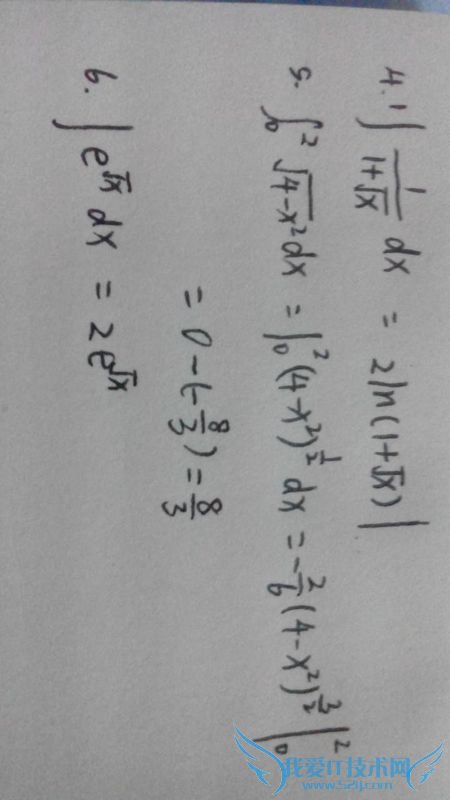 4. 1 ∫ 1/(1+√x) dx = 2ln(1+√x) |
5. ∫₀² √(4-x²) dx = ∫₀² (4-x²)^(1/2) dx = -2/6 (4-x²)^(3/2) |₀²
= 0 - (-8/3) = 8/3
6. ∫ e^√x dx = 2e^√x
我爱IT技术网
www.52ij.com